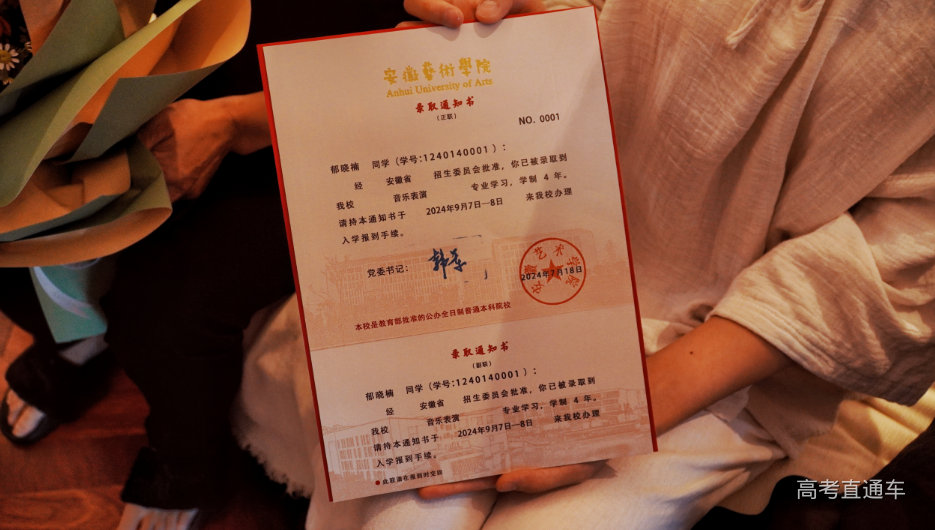 安徽藝術學院
Anhui University of Arts
录取通知书
（正联）
NO. 0001
郁晓楠 同学（学号:1240140001）：
经 安徽省 招生委员会批准，你已被录取到
我校 音乐表演 专业学习，学制 4 年。
请持本通知书于 2024年9月7日—8日 来我校办理
入学报到手续。
党委书记：
安徽艺术学院
2024年7月18日
本校是教育部批准的公办全日制普通本科院校
录取通知书
（副联）
郁晓楠 同学（学号:1240140001）：
经 安徽省 招生委员会批准，你已被录取到
我校 音乐表演 专业学习，学制 4 年。
请持本通知书于 2024年9月7日—8日 来我校办理
入学报到手续。
●此联请在报到时交回
高考直通车